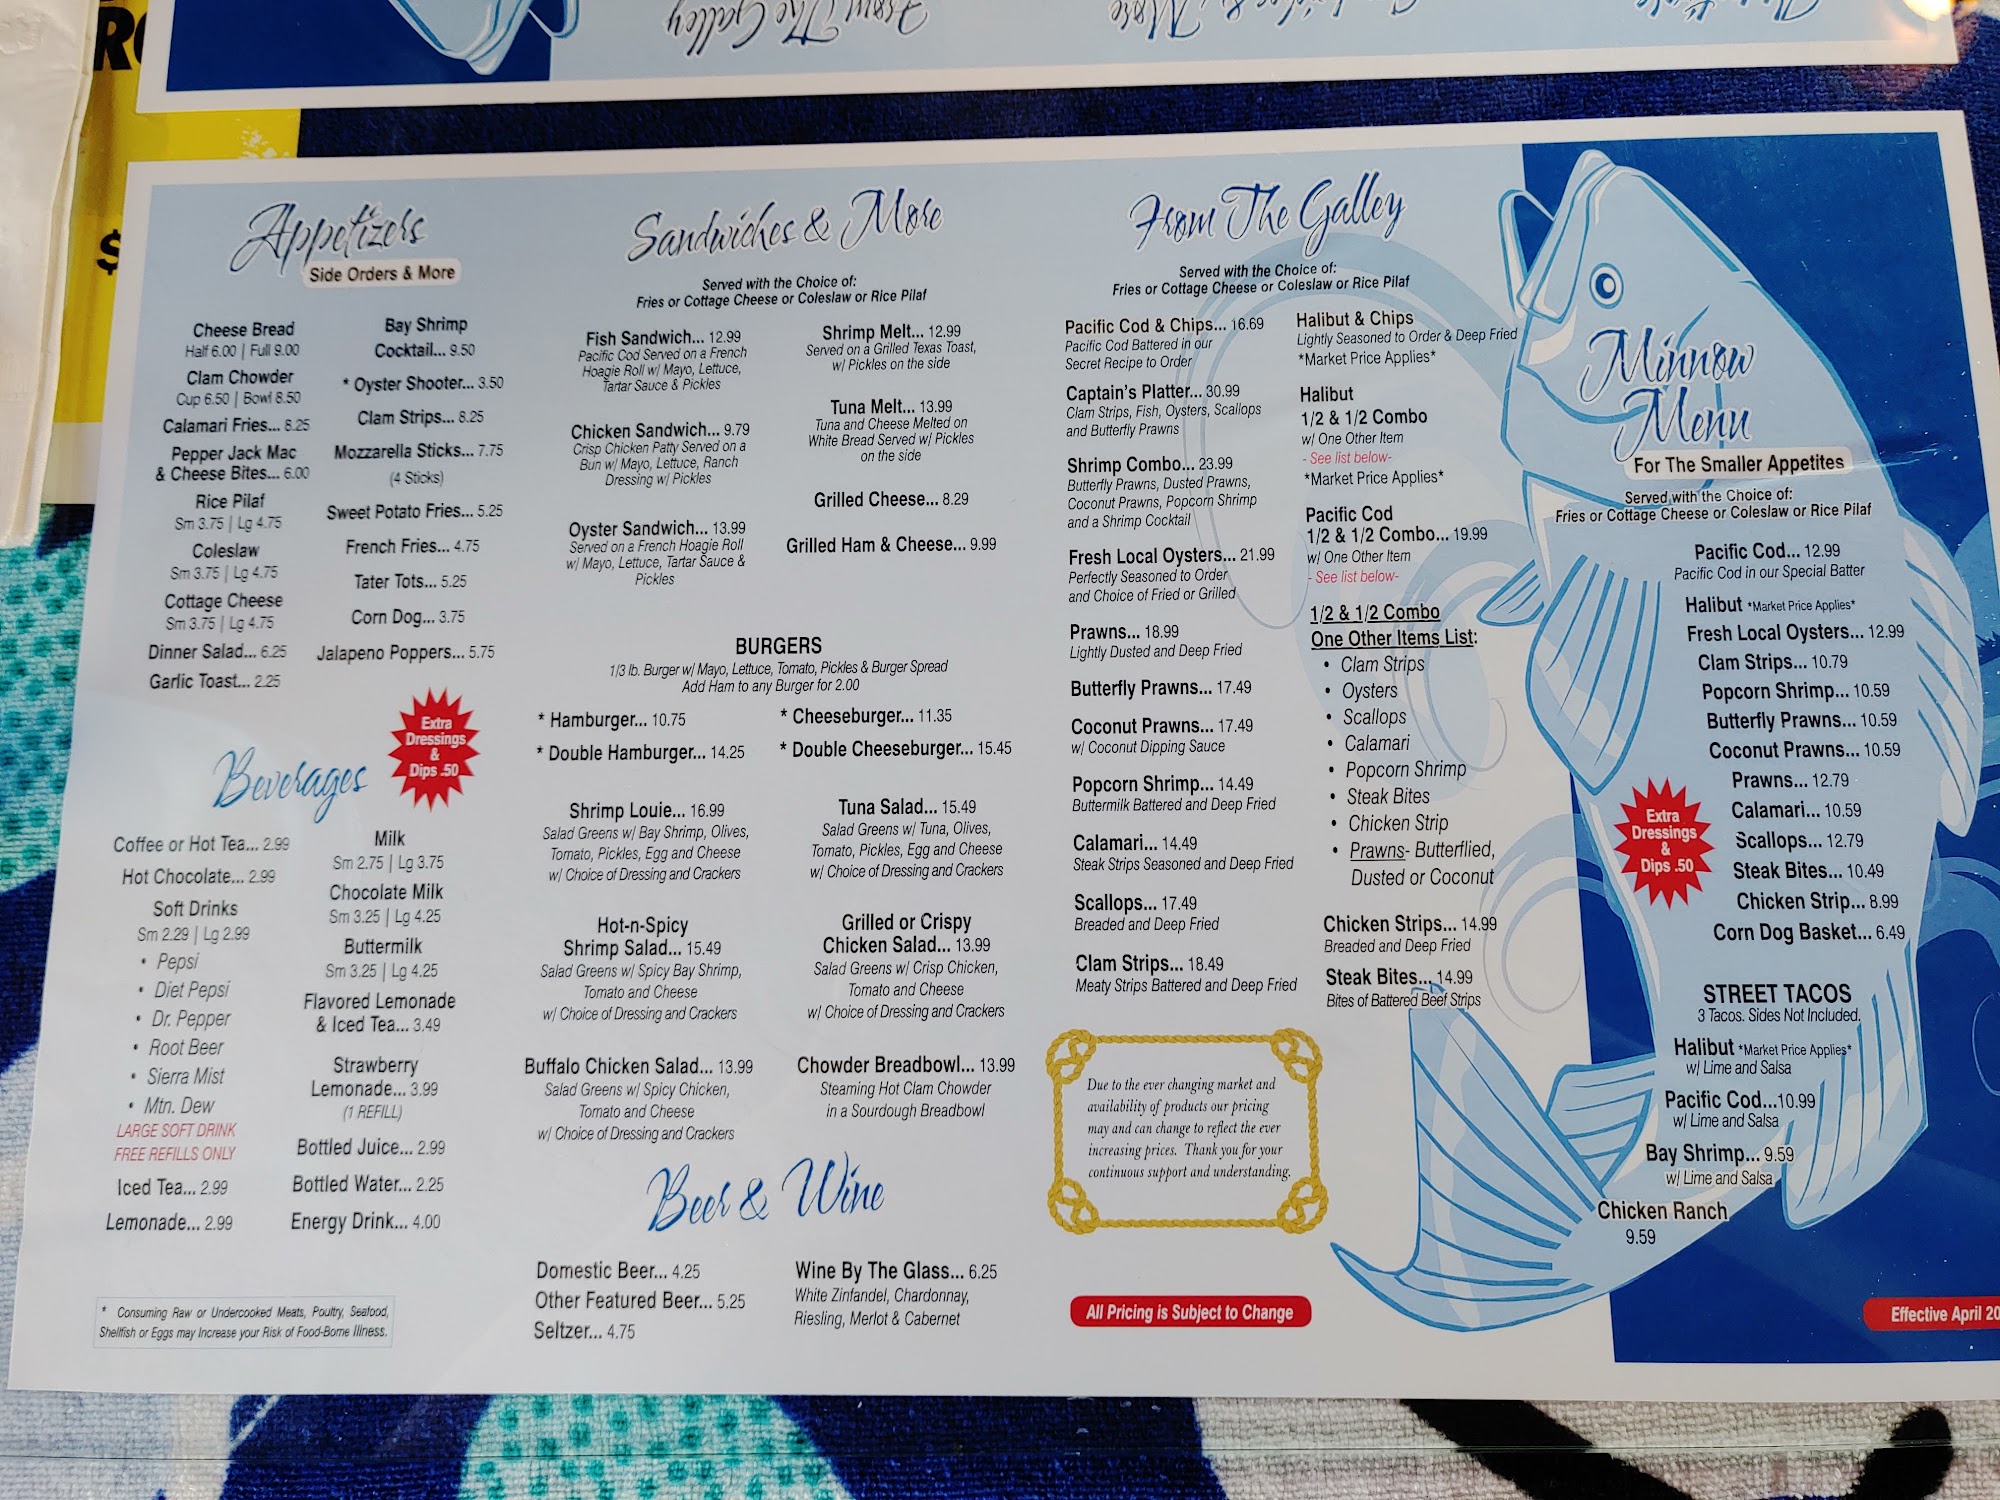 From The Galley
Appetizers
Side Orders & More
Cheese Bread
Half 6.00 | Full 9.00
Clam Chowder
Cup 6.50 | Bowl 8.50
Calamari Fries... 8.25
Pepper Jack Mac
& Cheese Bites... 6.00
Rice Pilaf
Sm 3.75 | Lg 4.75
Coleslaw
Sm 3.75 | Lg 4.75
Cottage Cheese
Sm 3.75 | Lg 4.75
Dinner Salad... 6.25
Garlic Toast... 2.25
Bay Shrimp
Cocktail... 9.50
* Oyster Shooter... 3.50
Clam Strips... 8.25
Mozzarella Sticks... 7.75
(4 Sticks)
Sweet Potato Fries... 5.25
French Fries... 4.75
Tater Tots... 5.25
Corn Dog... 3.75
Jalapeno Poppers... 5.75
Extra
Dressings
&
Dips .50
Beverages
Coffee or Hot Tea... 2.99
Hot Chocolate... 2.99
Soft Drinks
Sm 2.29 | Lg 2.99
• Pepsi
• Diet Pepsi
• Dr. Pepper
• Root Beer
• Sierra Mist
• Mtn. Dew
LARGE SOFT DRINK
FREE REFILLS ONLY
Iced Tea... 2.99
Lemonade... 2.99
Milk
Sm 2.75 | Lg 3.75
Chocolate Milk
Sm 3.25 | Lg 4.25
Buttermilk
Sm 3.25 | Lg 4.25
Flavored Lemonade
& Iced Tea... 3.49
Strawberry
Lemonade... 3.99
(1 REFILL)
Bottled Juice... 2.99
Bottled Water... 2.25
Energy Drink... 4.00
* Consuming Raw or Undercooked Meats, Poultry, Seafood,
Shellfish or Eggs may Increase your Risk of Food-Borne Illness.
Sandwiches & More
Served with the Choice of:
Fries or Cottage Cheese or Coleslaw or Rice Pilaf
Fish Sandwich... 12.99
Pacific Cod Served on a French
Hoagie Roll w/ Mayo, Lettuce,
Tartar Sauce & Pickles
Chicken Sandwich... 9.79
Crisp Chicken Patty Served on a
Bun w/ Mayo, Lettuce, Ranch
Dressing w/ Pickles
Oyster Sandwich... 13.99
Served on a French Hoagie Roll
w/ Mayo, Lettuce, Tartar Sauce &
Pickles
Shrimp Melt... 12.99
Served on a Grilled Texas Toast,
w/ Pickles on the side
Tuna Melt... 13.99
Tuna and Cheese Melted on
White Bread Served w/ Pickles
on the side
Grilled Cheese... 8.29
Grilled Ham & Cheese... 9.99
BURGERS
1/3 lb. Burger w/ Mayo, Lettuce, Tomato, Pickles & Burger Spread
Add Ham to any Burger for 2.00
* Hamburger... 10.75
* Double Hamburger... 14.25
* Cheeseburger... 11.35
* Double Cheeseburger... 15.45
Shrimp Louie... 16.99
Salad Greens w/ Bay Shrimp, Olives,
Tomato, Pickles, Egg and Cheese
w/ Choice of Dressing and Crackers
Tuna Salad... 15.49
Salad Greens w/ Tuna, Olives,
Tomato, Pickles, Egg and Cheese
w/ Choice of Dressing and Crackers
Hot-n-Spicy
Shrimp Salad... 15.49
Salad Greens w/ Spicy Bay Shrimp,
Tomato and Cheese
w/ Choice of Dressing and Crackers
Grilled or Crispy
Chicken Salad... 13.99
Salad Greens w/ Crisp Chicken,
Tomato and Cheese
w/ Choice of Dressing and Crackers
Buffalo Chicken Salad... 13.99
Salad Greens w/ Spicy Chicken,
Tomato and Cheese
w/ Choice of Dressing and Crackers
Chowder Breadbowl... 13.99
Steaming Hot Clam Chowder
in a Sourdough Breadbowl
Beer & Wine
Domestic Beer... 4.25
Other Featured Beer... 5.25
Seltzer... 4.75
Wine By The Glass... 6.25
White Zinfandel, Chardonnay,
Riesling, Merlot & Cabernet
From The Galley
Served with the Choice of:
Fries or Cottage Cheese or Coleslaw or Rice Pilaf
Pacific Cod & Chips... 16.69
Pacific Cod Battered in our
Secret Recipe to Order
Captain's Platter... 30.99
Clam Strips, Fish, Oysters, Scallops
and Butterfly Prawns
Shrimp Combo... 23.99
Butterfly Prawns, Dusted Prawns,
Coconut Prawns, Popcorn Shrimp
and a Shrimp Cocktail
Fresh Local Oysters... 21.99
Perfectly Seasoned to Order
and Choice of Fried or Grilled
Prawns... 18.99
Lightly Dusted and Deep Fried
Butterfly Prawns... 17.49
Coconut Prawns... 17.49
w/ Coconut Dipping Sauce
Popcorn Shrimp... 14.49
Buttermilk Battered and Deep Fried
Calamari... 14.49
Steak Strips Seasoned and Deep Fried
Scallops... 17.49
Breaded and Deep Fried
Clam Strips... 18.49
Meaty Strips Battered and Deep Fried
Halibut & Chips
Lightly Seasoned to Order & Deep Fried
*Market Price Applies*
Halibut
1/2 & 1/2 Combo
w/ One Other Item
- See list below-
*Market Price Applies*
Pacific Cod
1/2 & 1/2 Combo... 19.99
w/ One Other Item
- See list below-
1/2 & 1/2 Combo
One Other Items List:
• Clam Strips
• Oysters
• Scallops
• Calamari
• Popcorn Shrimp
• Steak Bites
• Chicken Strip
• Prawns- Butterflied,
Dusted or Coconut
Chicken Strips... 14.99
Breaded and Deep Fried
Steak Bites... 14.99
Bites of Battered Beef Strips
Due to the ever changing market and
availability of products our pricing
may and can change to reflect the ever
increasing prices. Thank you for your
continuous support and understanding.
All Pricing is Subject to Change
Minnow
Menu
For The Smaller Appetites
Served with the Choice of:
Fries or Cottage Cheese or Coleslaw or Rice Pilaf
Pacific Cod... 12.99
Pacific Cod in our Special Batter
Halibut *Market Price Applies*
Fresh Local Oysters... 12.99
Clam Strips... 10.79
Popcorn Shrimp... 10.59
Butterfly Prawns... 10.59
Coconut Prawns... 10.59
Prawns... 12.79
Calamari... 10.59
Scallops... 12.79
Steak Bites... 10.49
Chicken Strip... 8.99
Corn Dog Basket... 6.49
Extra
Dressings
&
Dips .50
STREET TACOS
3 Tacos. Sides Not Included.
Halibut *Market Price Applies*
w/ Lime and Salsa
Pacific Cod...10.99
w/ Lime and Salsa
Bay Shrimp... 9.59
w/ Lime and Salsa
Chicken Ranch
9.59
Effective April 20